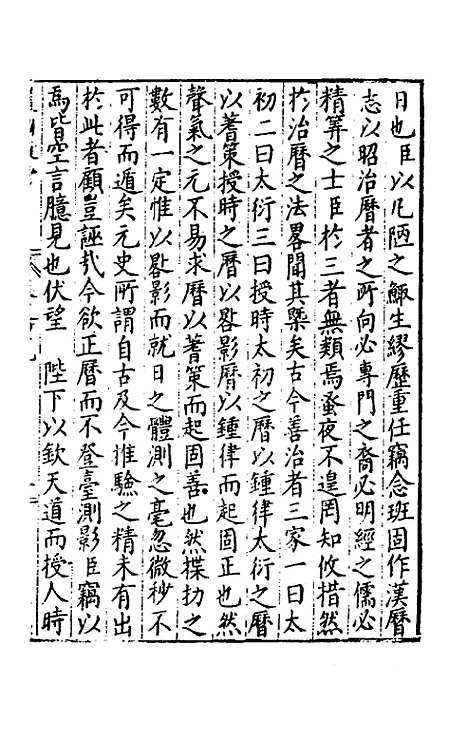 日也臣以凡陋之鯫生繆歷重任竊念班固作漢曆
志以昭治曆者之所向必專門之裔必明經之儒必
精筭之士臣於三者無類焉蚤夜不遑罔知攸措然
於治曆之法畧聞其槩矣古今善治者三家一曰太
初二曰大衍三曰授時太初之曆以鍾律太衍之曆
以蓍策授時之曆以晷影曆以鍾律而起固正也然
聲氣之元不易求曆以蓍策而起固善也然揲扐之
數有一定惟以晷影而就日之體測之毫忽微秒不
可得而遁矣元史所謂自古及今推驗之精未有出
於此者顧豈誣㢤今欲正曆而不登臺測影臣竊以
爲皆空言臆見也伏望　陛下以欽天道而授人時